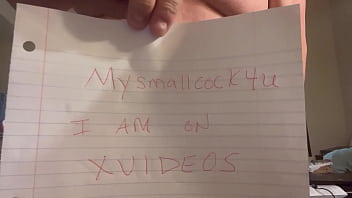 Mysmallcock4u
I AM ON
XVIDEOS